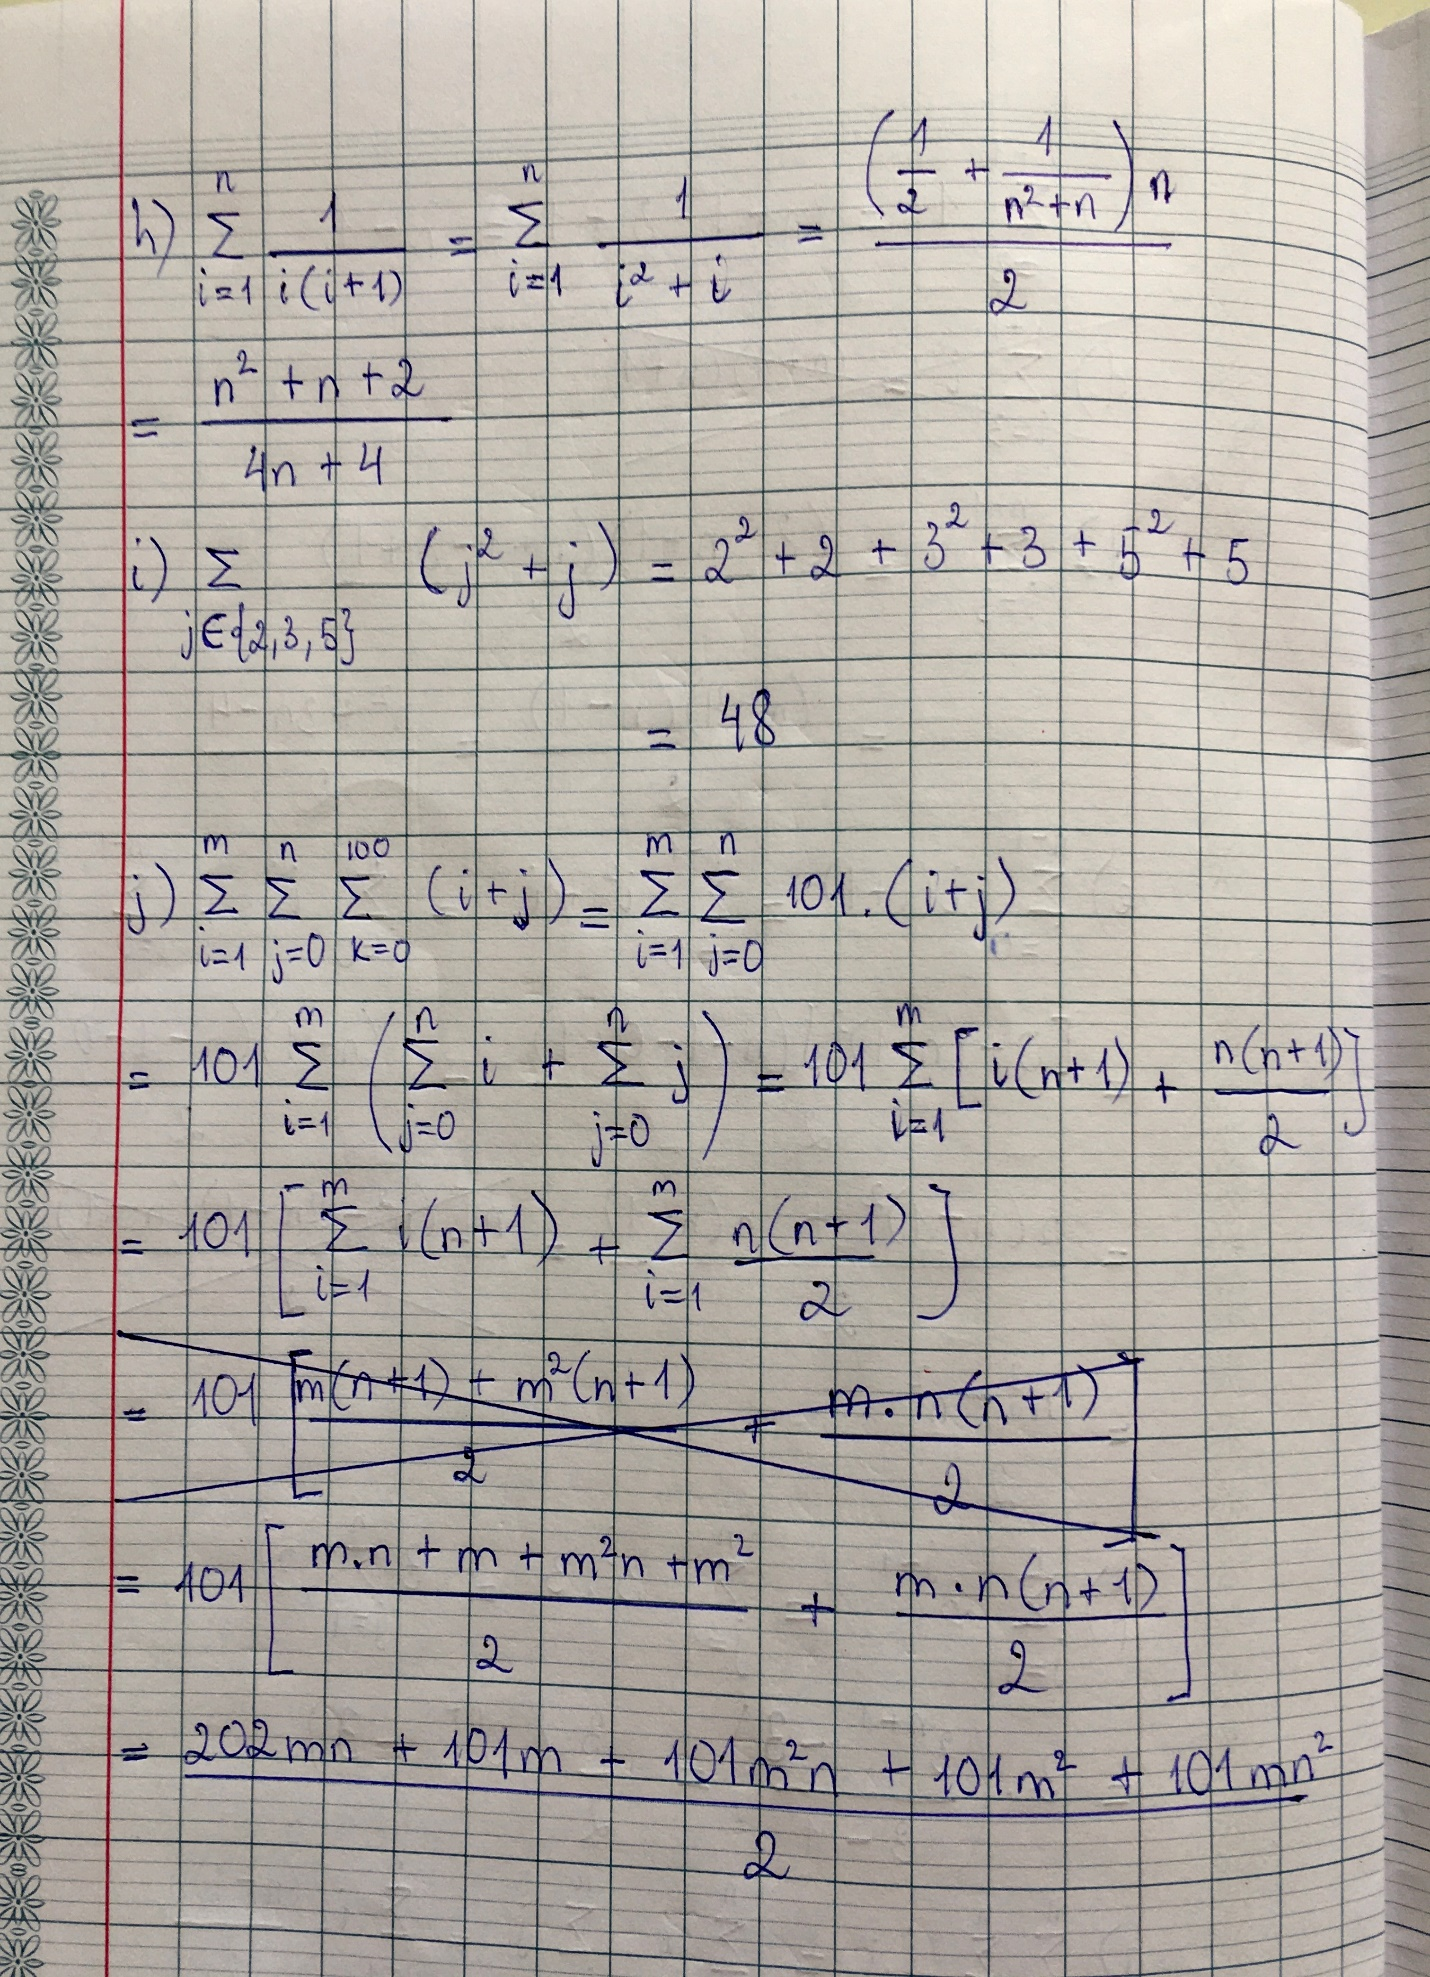 h) \sum_{i=1}^{n} \frac{1}{i(i+1)} = \sum_{i=1}^{n} \frac{1}{i^2+i} = \frac{\left(\frac{1}{2} + \frac{1}{n^2+n}\right)n}{2}
= \frac{n^2+n+2}{4n+4}
i) \sum_{j∈\{2,3,5\}} (j^2+j) = 2^2+2+3^2+3+5^2+5
= 48
j) \sum_{i=1}^{m} \sum_{j=0}^{n} \sum_{k=0}^{100} (i+j) = \sum_{i=1}^{m} \sum_{j=0}^{n} 101.(i+j)
= 101 \sum_{i=1}^{m} \left(\sum_{j=0}^{n} i + \sum_{j=0}^{n} j\right) = 101 \sum_{i=1}^{m} \left[i(n+1) + \frac{n(n+1)}{2}\right]
= 101 \left[\sum_{i=1}^{m} i(n+1) + \sum_{i=1}^{m} \frac{n(n+1)}{2}\right]
= 101 \left[\frac{m(n+1)+m^2(n+1)}{2} + \frac{m.n(n+1)}{2}\right]
= 101 \left[\frac{m.n+m+m^2n+m^2}{2} + \frac{m.n(n+1)}{2}\right]
= \frac{202mn+101m+101m^2n+101m^2+101mn^2}{2}